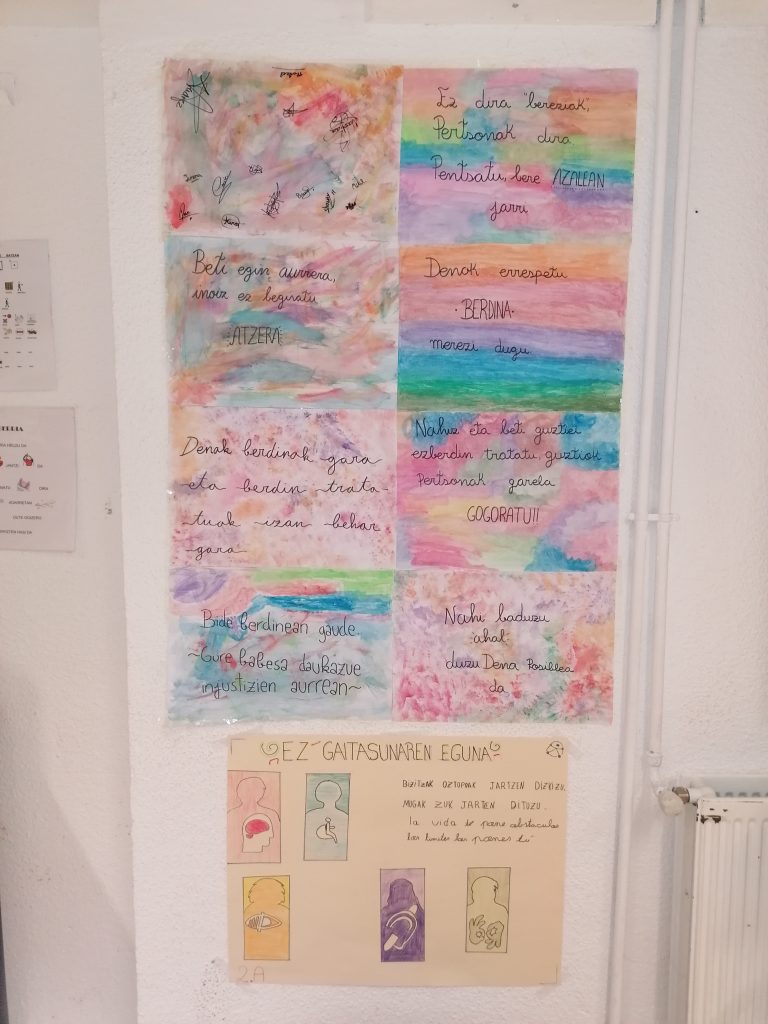 Ez dira "bereziak",
Pertsonak dira
Pentsatu, bere AZALEAN
jarri
Beti egin aurrera,
inoiz ez begiratu
ATZERA
Denok errespetu
·BERDINA·
merezi dugu.
Denak berdinak gara
eta berdin trata-
tuak izan behar
gara
Nahiz eta beti guztiei
ezberdin tratatu, guztiok
Pertsonak garela
GOGORATU!!
Bide berdinean gaude.
~Gure babesa daukazue
injustizien aurrean~
Nahi baduzu
ahal
duzu Dena Posiblea
da
EZ GAITASUNAREN EGUNA
BIZITZAK OZTOPOAK JARTZEN DIZKIZU,
MUGAK ZUK JARTZEN DITUZU.
la vida te pone obstaculos
los limites los pones tú"
2.A